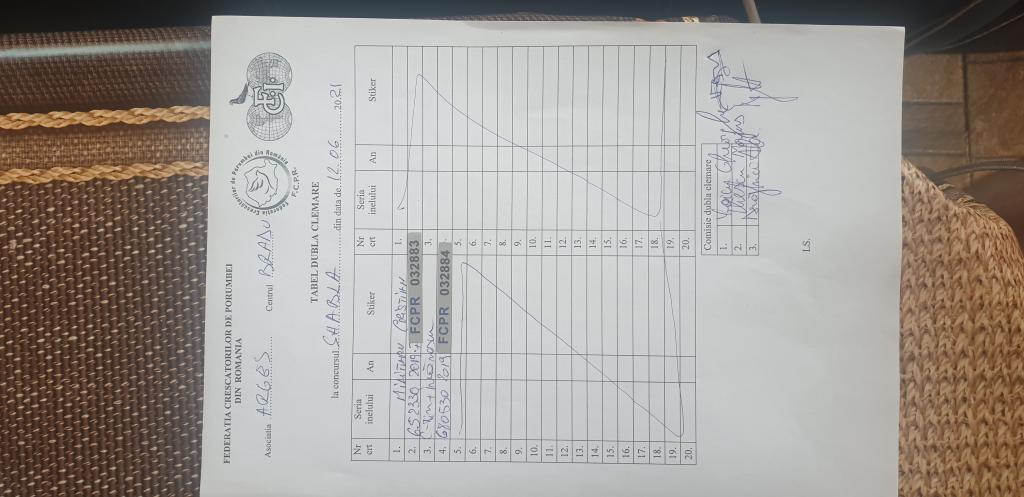 FEDERATIA CRESCATORILOR DE PORUMBEI
DIN ROMANIA
Asociatia ARGES Centrul BRADU
Federatia Crescatorilor de Porumbei din România
F.C.P.R.
TABEL DUBLA CLEMARE
la concursul SHABLA din data de 12.06 2021
Nr crt Seria inelului An Stiker Nr crt Seria inelului An Stiker
1. CRISTIAN 1.
2. 652330 2019 FCPR 032883
3. 3.
4. 2019 FCPR 032884
5. 5.
6. 6.
7. 7.
8. 8.
9. 9.
10. 10.
11. 11.
12. 12.
13. 13.
14. 14.
15. 15.
16. 16.
17. 17.
18. 18.
19. 19.
20. 20.
Comisie dubla clemare
1. Gheorghe
2.
3.
LS.